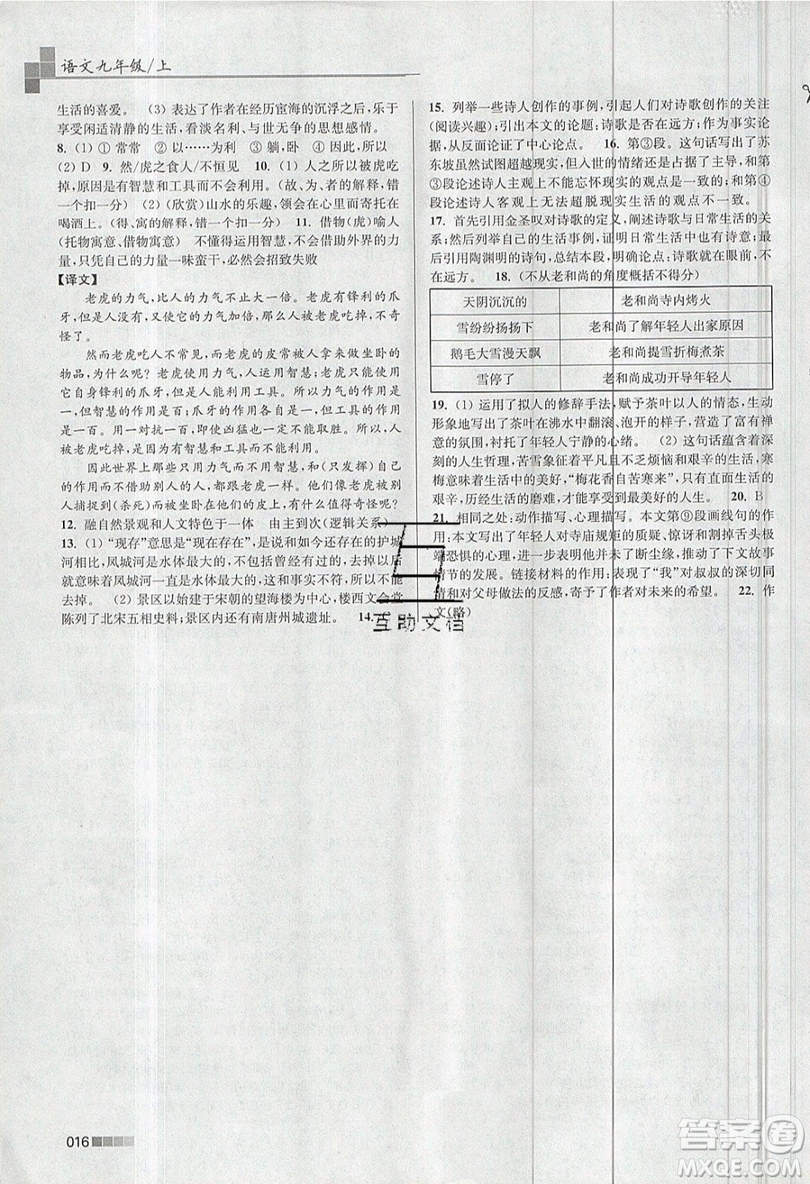 语文九年级/上
生活的喜爱。 (3) 表达了作者在经历宦海的沉浮之后,乐于
享受闲适清静的生活,看淡名利、与世无争的思想感情。
8. (1) ① 常常 ② 以……为利 ③ 躺,卧 ④ 因此,所以
(2) D 9. 然/虎之食人/不恒见 10. (1) 人之所以被虎吃
掉,原因是有智慧和工具而不会利用。(故、为、者的解释,错
一个扣一分) (2) (欣赏)山水的乐趣,领会在心里而寄托在
喝酒上。(得、寓的解释,错一个扣一分) 11. 借物(虎)喻人
(托物寓意、借物寓意) 不懂得运用智慧,不会借助外界的力
量,只凭自己的力量一味蛮干,必然会招致失败
【译文】
老虎的力气,比人的力气不止大一倍。老虎有锋利的爪
牙,但是人没有,又使它的力气加倍,那么人被老虎吃掉,不奇
怪了。
然而老虎吃人不常见,而老虎的皮常被人做坐卧的物
品,为什么呢?老虎使用力气,人运用智慧;老虎只能使用它
自己锋利的爪牙,而人能利用工具。所以力气的作用是
一,但智慧的作用有百;爪牙的作用是一,但工具的作用有
百。用一对抗一百,即使凶猛也一定不能取胜。
所以人被老虎吃掉,是因为有智慧和工具而不能利用。
因此世界上那些只用力气却不用智慧,和(只发挥)自己
的作用而不借助别人的人,都跟老虎一样。他们像老虎一样
被人捕捉(杀死)而坐卧在他们的皮上,有什么值得奇怪呢?
12. 融自然景观和人文特色于一体 由主到次(逻辑关系)
13. (1) “现存”意思是“现在存在”,说的是如今还存在的护城
河风城河是水体最大的,不包括曾经有过的,去掉以后
就意味着凤城河一直是水体最大的,与事实不符,所以不能
去掉。 (2) 景区以始建于宋朝的望海楼为中心,楼西文会堂
陈列了北宋五相史料;景区内有南唐州城遗址。 14.
15. 列举一些诗人创作的事例,引起人们对诗歌创作的关注
(阅读兴趣);引出本文的论题:诗歌是否在远方;作为事实论
据,从反面论证了中心论点。 16. 第③段。这句话写出了苏
东坡虽然试图超越现实,但人世的情绪还是占据了主导,与第
③段论述诗人主观上不能忘怀现实的观点是一致的。和第④
段诗人客观上无法超脱现实的观点不一致。
17. 首先引用金圣叹对诗歌的定义,阐述诗歌与日常生活的关
系;然后列举自己的生活事例,证明日常生活与诗歌的关系;
再引用陶渊明的诗句,总结本段的内容,证明诗歌就在眼前,不
在远方。 18. (不从老和尚的角度概括不得分)
天阴沉沉的 老和尚寺内烤火
雪纷纷扬扬下 老和尚了解年轻人出家原因
鹅毛大雪漫天飘 老和尚提雪折梅煮茶
雪停了 老和尚成功开导年轻人
19. (1) 运用了拟人的修辞手法,赋予茶叶以人的情态,生动
形象地写出了茶叶在沸水中翻滚、泡开的样子,营造了富有禅
意的氛围,衬托了年轻人宁静的心绪。 (2) 这句话蕴含着深
刻的人生哲理,苦雪象征着平凡且不完美甚至艰辛的生活,寒
梅意味着美好的生活,“梅花香自苦寒来”,我们只有经过生活的
艰辛、历经生活的磨难,才能创造出最美好的人生。 20. B
21. 相同之处:动作描写、心理描写。本文第⑨段画线句的作
用:写出了年轻人对寺庙规矩的疑惑、惊讶和割掉舌头极
端恐惧的心理,表明他并未真正了断尘缘,推动了下文故事
情节的发展。链接材料的作用:表现了“我”对叔叔的深切同
情和对父母做法的反感,寄予了作者对未来的希望。 22. 作
文(略)
互助文档
016
答案圈
MXQE.COM